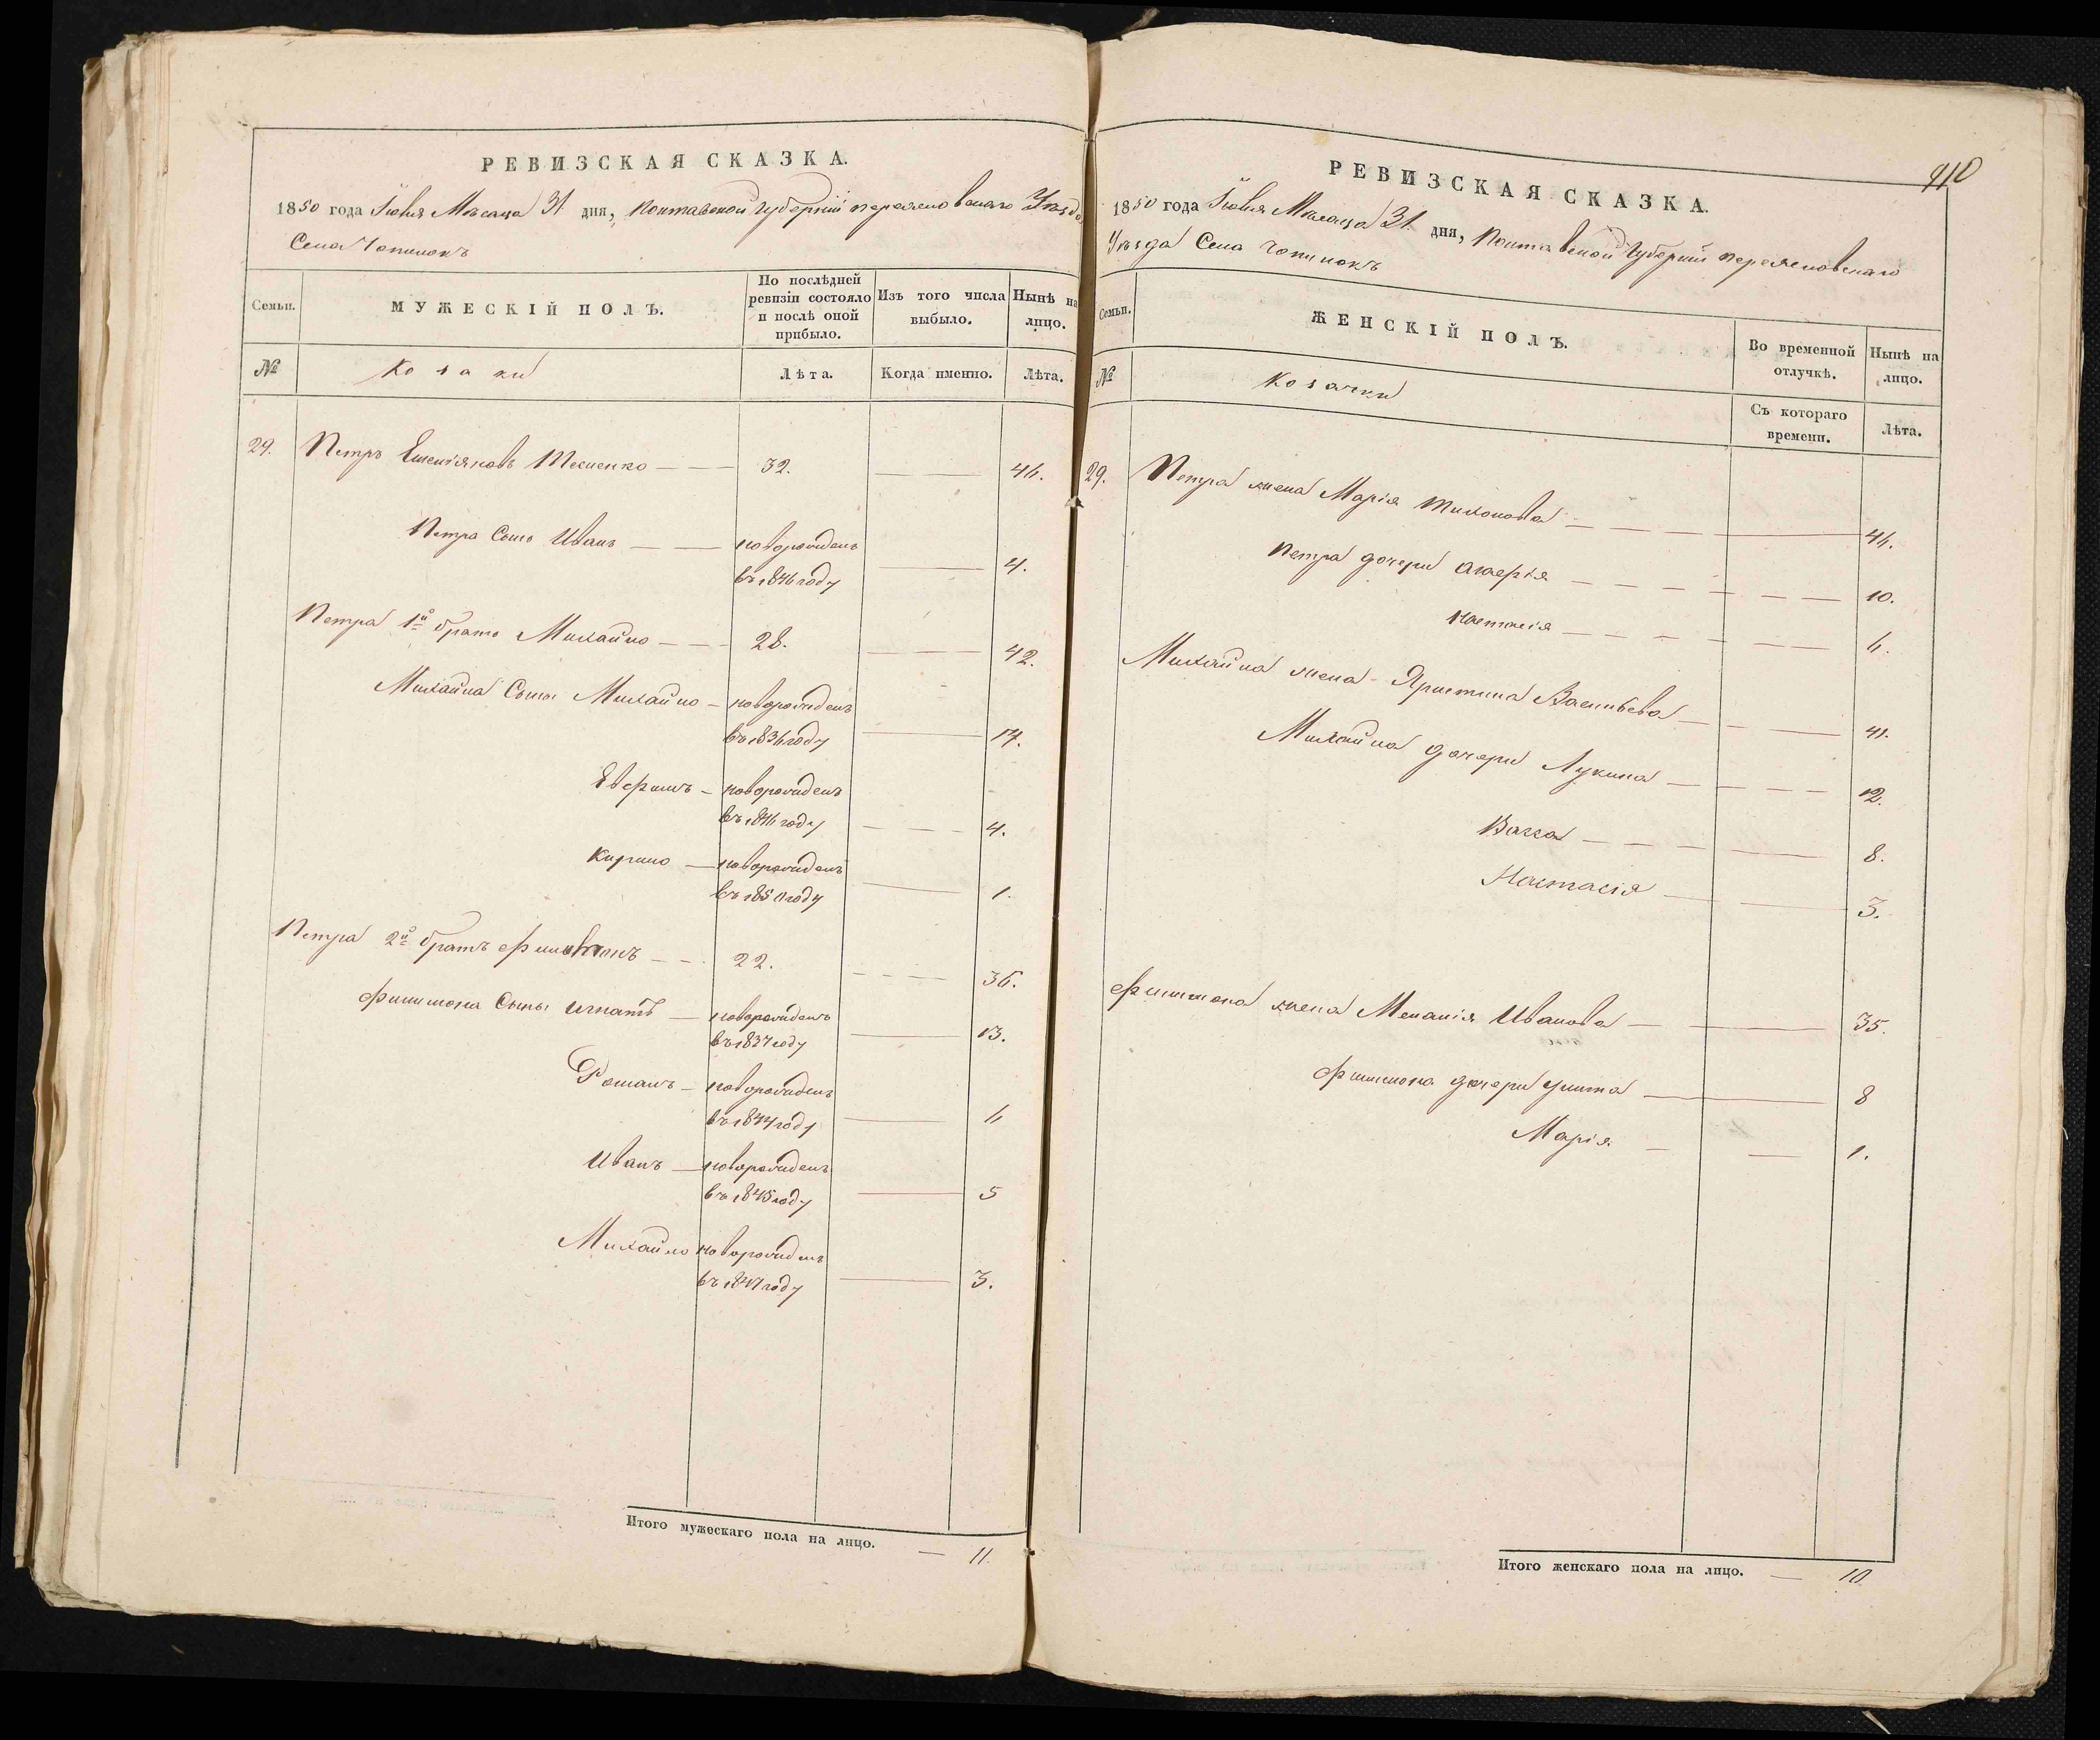 РЕВИЗСКАЯ СКАЗКА.
1850 года Іюля Месяца 31 дня, Полтавской Губерніи переяславскаго Уезда
Села Чопилокъ
Семьи.
МУЖЕСКІЙ ПОЛЪ.
По послѣдней ревизіи состояло и послѣ оной прибыло.
Изъ того числа выбыло.
Нынѣ на лицо.
№
Козаки
Лѣта.
Когда именно.
Лѣта.
29. Петръ 32. 46.
Петра Сынъ Иванъ новорожденъ
въ 1846 году 4.
Петра 1й братъ Михайло 28. 42.
Михайла Сыны Михайло новорожденъ
въ 1836 году 14.
Евфимъ новорожденъ
въ 1846 году 4.
Кирило новорожденъ
въ 1850 году 1.
Петра 2й братъ Филимонъ 22. 36.
Филимона Сыны Игнатъ новорожденъ
въ 1837 году 13.
Романъ новорожденъ
въ 1844 году 6
Иванъ новорожденъ
въ 1845 году 5
Михайло новорожденъ
въ 1847 году 3.
Итого мужескаго пола на лицо. 11.
РЕВИЗСКАЯ СКАЗКА.
910
1850 года Іюля Месяца 31. дня, Полтавской Губерніи переяславскаго
Уезда Села Чопилокъ
Семьи.
ЖЕНСКІЙ ПОЛЪ.
Во временной отлучкѣ.
Нынѣ на лицо.
№
Козачки
Съ котораго времени.
Лѣта.
29. Петра жена Марія Тихонова 46.
Петра дочери Гликерія 10.
Настасія 6.
Михайла жена Христина Васильева 41.
Михайла дочери Лукина 12.
Васса 8.
Настасія 3.
Филимона жена Меланія Иванова 35.
Филимона дочери Улита 8
Марія 1.
Итого женскаго пола на лицо. 10